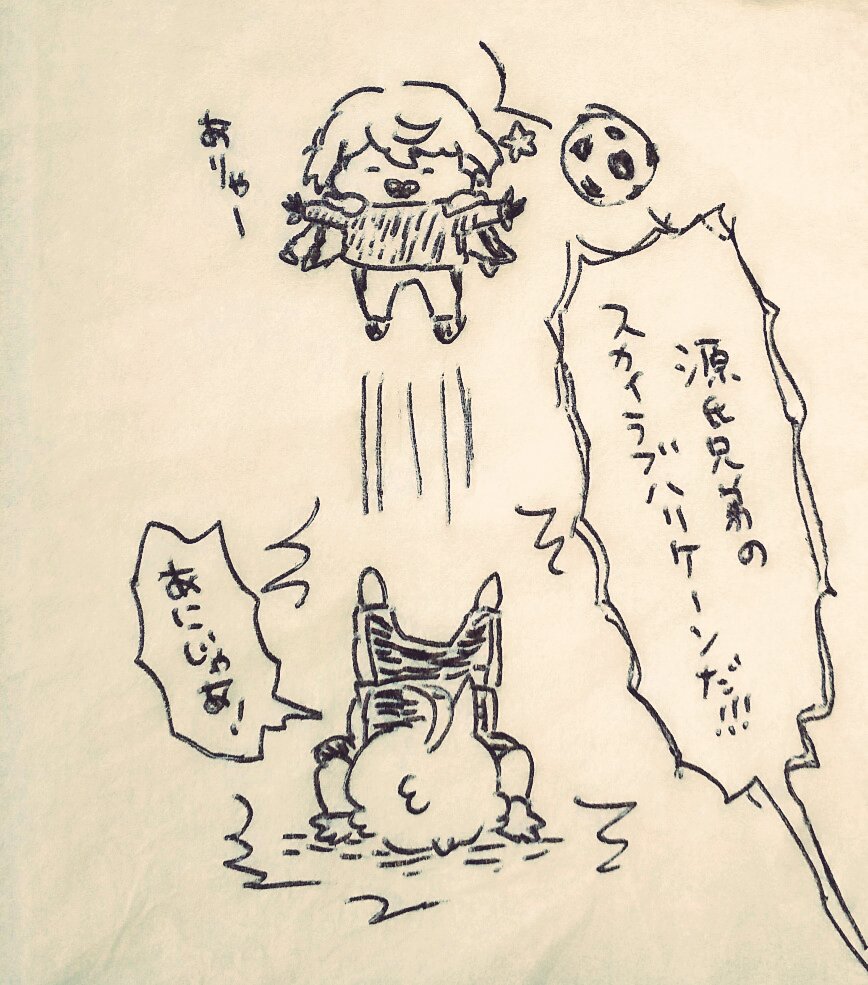 源氏兄弟の
スカイラブハリケーンだ!!!
ありゃー
あにじゃぁ!